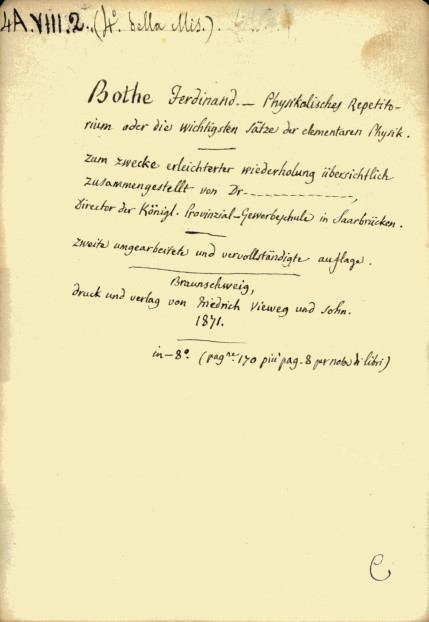 4A.VIII.2. (4ª della Mis.).
Bothe Ferdinand. — Physikalisches Repetito-
rium oder die wichtigsten Sätze der elementaren Physik.
zum zwecke erleichterter wiederholung übersichtlich
zusammengestellt von Dr - - - - - - - - - -,
Director der Königl. Provinzial-Gewerbeschule in Saarbrücken.
zweite umgearbeitete und vervollständigte auflage.
Braunschweig,
druck und verlag von Friedrich Vieweg und sohn.
1871.
in-8º (pagne. 170 più pag. 8 per nota di libri)
C